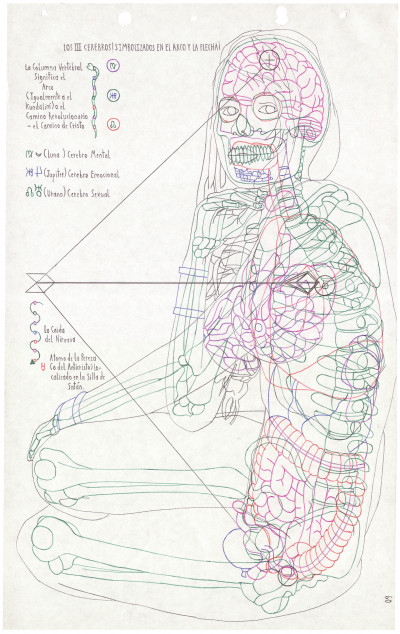 LOS III CEREBROS (SIMBOLIZADOS EN EL ARCO Y LA FLECHA)
La Columna Vertebral
Significa el
Arco
(Igualmente a el
Kundalini) o el
Camino Revolucionario
– el Camino de Cristo
(Luna) Cerebro Mental
(Jupiter) Cerebro Emocional
(Urano) Cerebro Sexual
La Caida
del
Atomo de la Pereza
(o del Anticristo) lo-
calizado en la Silla de
Satán.